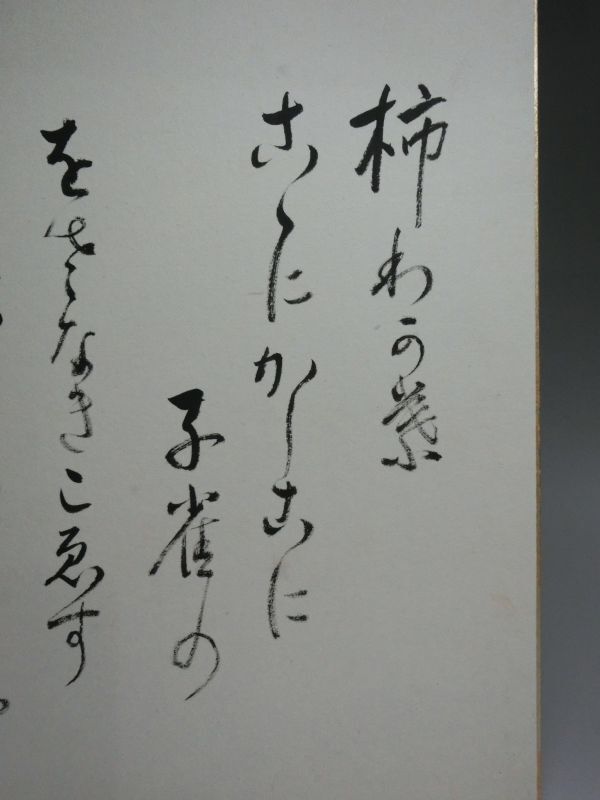 柿わか葉
こゝにかしこに
子雀の
をさなきこゑす